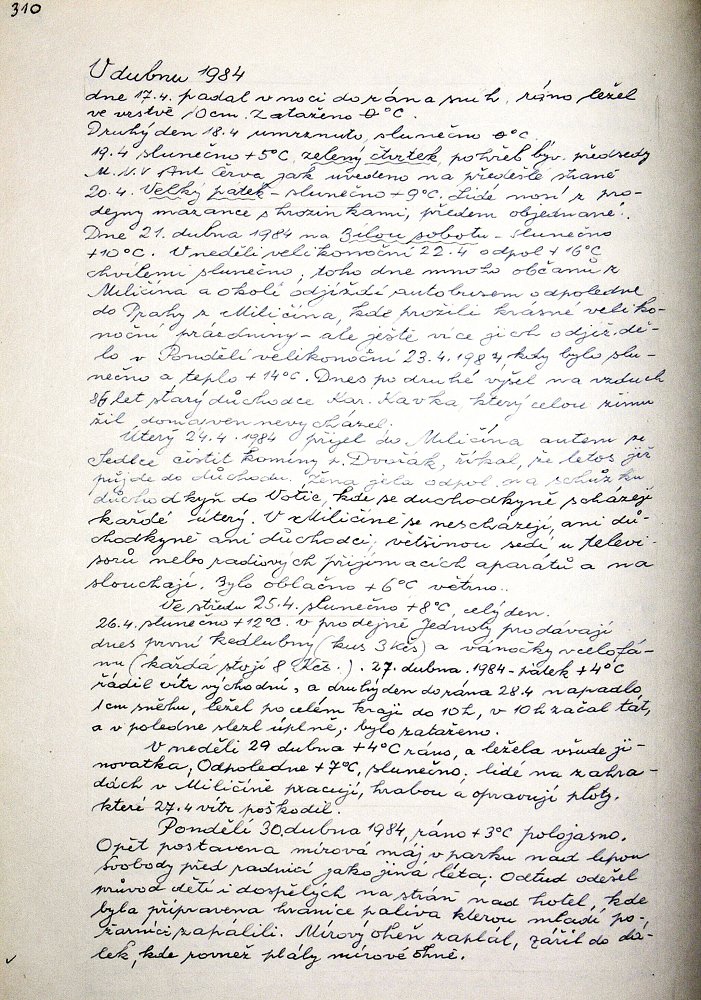 310
V dubnu 1984
dne 17.4. padal v noci do rána sníh, ráno ležel
ve vrstvě 10cm. Zataženo 0°C.
Druhý den 18.4 umrznuto, slunečno 0°C.
19.4 slunečno +5°C, zelený čtvrtek, pohřeb býv. předsedy
M.N.V Ant Červa jak uvedeno na předešlé straně
20.4. Velký pátek - slunečno +9°C. Lidé nosí z pro-
dejny mazance s hrozinkami, předem objednané.
Dne 21. dubna 1984 na Bílou sobotu - slunečno
+10°C. V neděli velikonoční 22.4 odpol +16°C
chvílemi slunečno, toho dne mnoho občanů z
Miličína a okolí odjíždí autobusem odpoledne
do Prahy z Miličína, kde prožili krásné veliko-
noční prázdniny - ale ještě více jich odjíždě-
lo v Pondělí velikonoční 23.4.1984, kdy bylo slu-
nečno a teplo +14°C. Dnes po druhé vyšel na vzduch
86 let starý důchodce Kar. Kavka který celou zimu
žil doma ven nevycházel.
Úterý 24.4.1984 přijel do Miličína autem ze
Sedlce čistit komíny p. Dvořák, říkal, že letos již
půjde do důchodu. Žena jela odpol. na schůzku
důchodkyň do Votic, kde se duchodkyně scházejí
každé úterý. V Miličíně se nescházejí, ani dů-
chodkyně ani důchodci, většinou sedí u televi-
sorů nebo radiových přijímacích aparátů a na
slouchají. Bylo oblačno +6°C větrno..
Ve středu 25.4. slunečno +8°C, celý den.
26.4. slunečno +12°C. v prodejně Jednoty prodávají
dnes první kedlubny (kus 3 Kčs) a vánočky v celofá-
nu (každá stojí 8 Kčs.). 27. dubna. 1984 - pátek +4°C
řádil vítr východní, a druhý den do rána 28.4 napadlo
1cm sněhu, ležel po celém kraji do 10h, v 10h začal tát,
a v poledne slezl úplně, bylo zataženo.
V neděli 29 dubna +4°C ráno, a ležela všude ji-
novatka, Odpoledne +7°C, slunečno, lidé na zahra-
dách v Miličíně pracují, hrabou a opravují ploty,
které 27.4 vítr poškodil.
Pondělí 30.dubna 1984, ráno +3°C polojasno.
Opět postavena mírová máj v parku nad lípou
Svobody před radnicí jako jiná léta, Odtud odešel
průvod dětí i dospělých na stráň nad hotel, kde
byla připravena hranice paliva kterou mladí po-
žárníci zapálili. Mírový oheň zaplál, zářil do dá-
lek, kde rovněž plály mírové ohně.